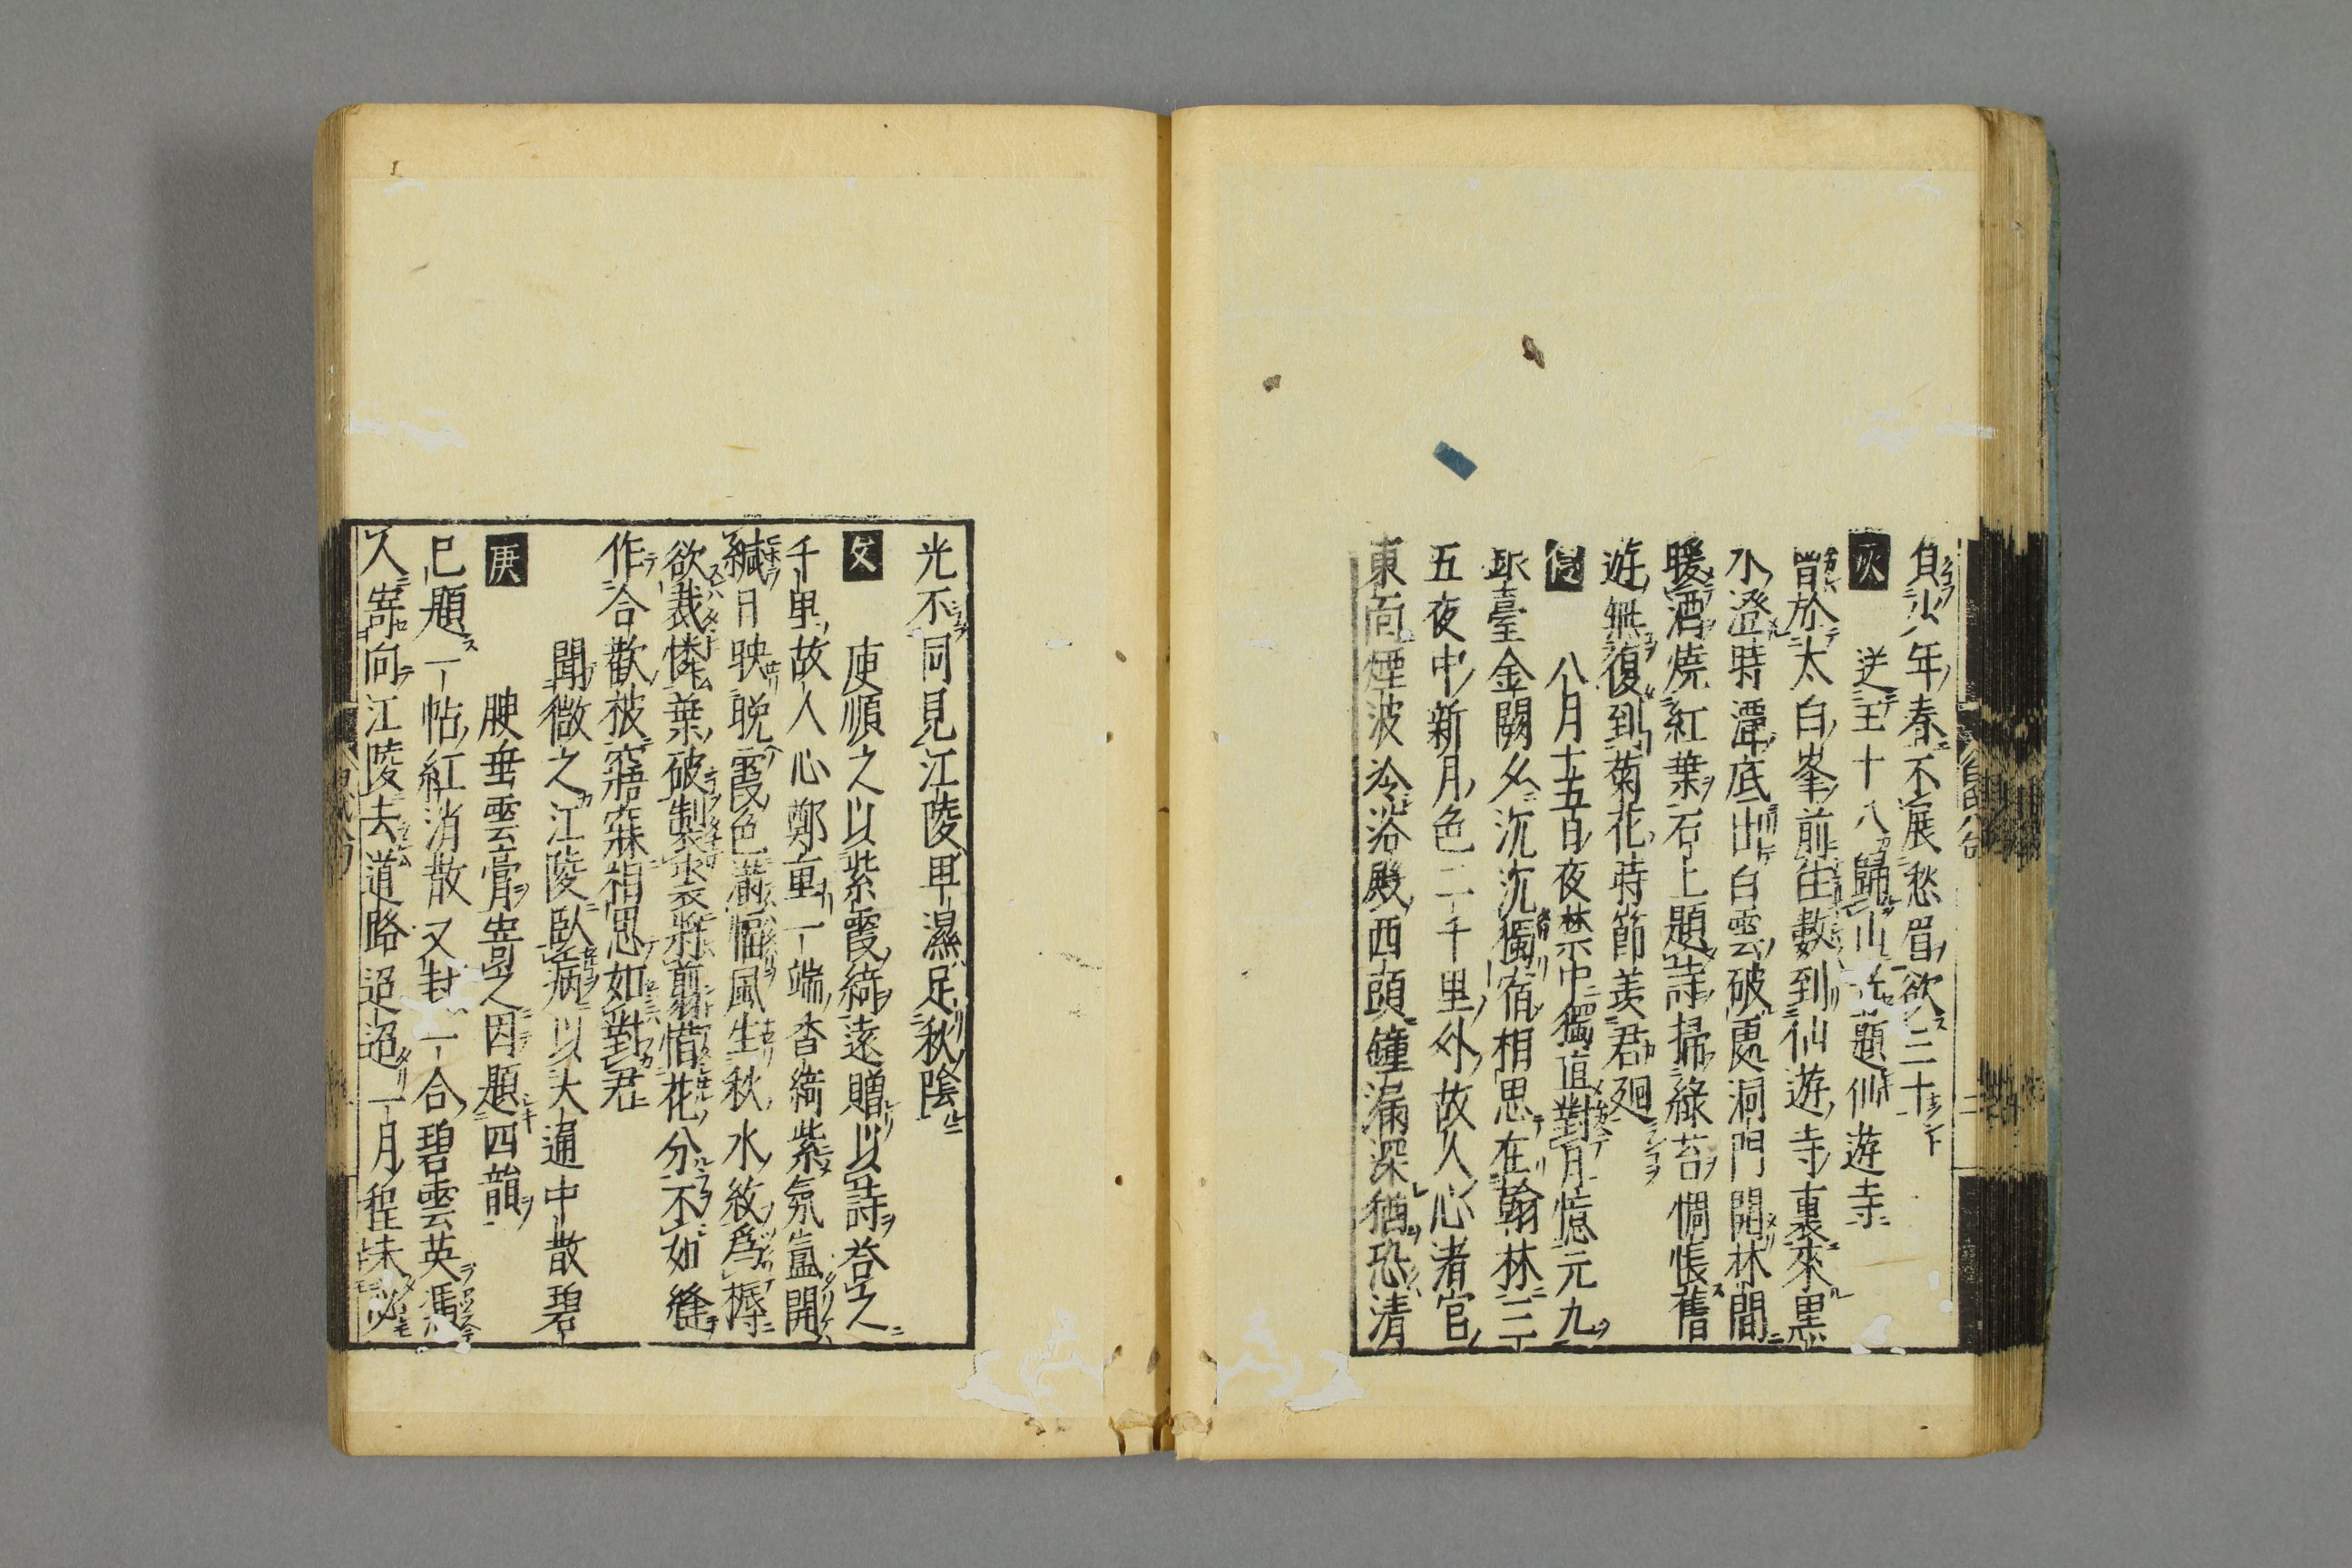 負少年春不展愁眉欲三十
灰 送王十八歸山題仙遊寺
曽於太白峯前住數到仙遊寺裏來黒
水澄時潭底出白雲破處洞門開林間
暖酒燒紅葉石上題詩掃綠苔惆悵舊
遊無復到菊花時節羨君廻
八月十五日夜禁中獨直對月憶元九
銀臺金闕夕沉沉獨宿相思在翰林三
五夜中新月色二千里外故人心渚宮
東面煙波冷浴殿西頭鐘漏深猶恐清
光不同見江陵卑濕足秋陰
文 庾順之以紫霞綺遠贈以詩荅之
千里故人心鄭重一端香綺紫氛氳開
緘日映晩霞色滿幅風生秋水紋爲褥
欲裁憐葉破製裘將翦惜花分不如縫
作合歡被寤寐相思如對君
聞微之江陵臥病以大通中散碧
庚 腴垂雲膏寄之因題四韻
已題一帖紅消散又封一合碧雲英馮
人寄向江陵去道路迢迢一月程未必